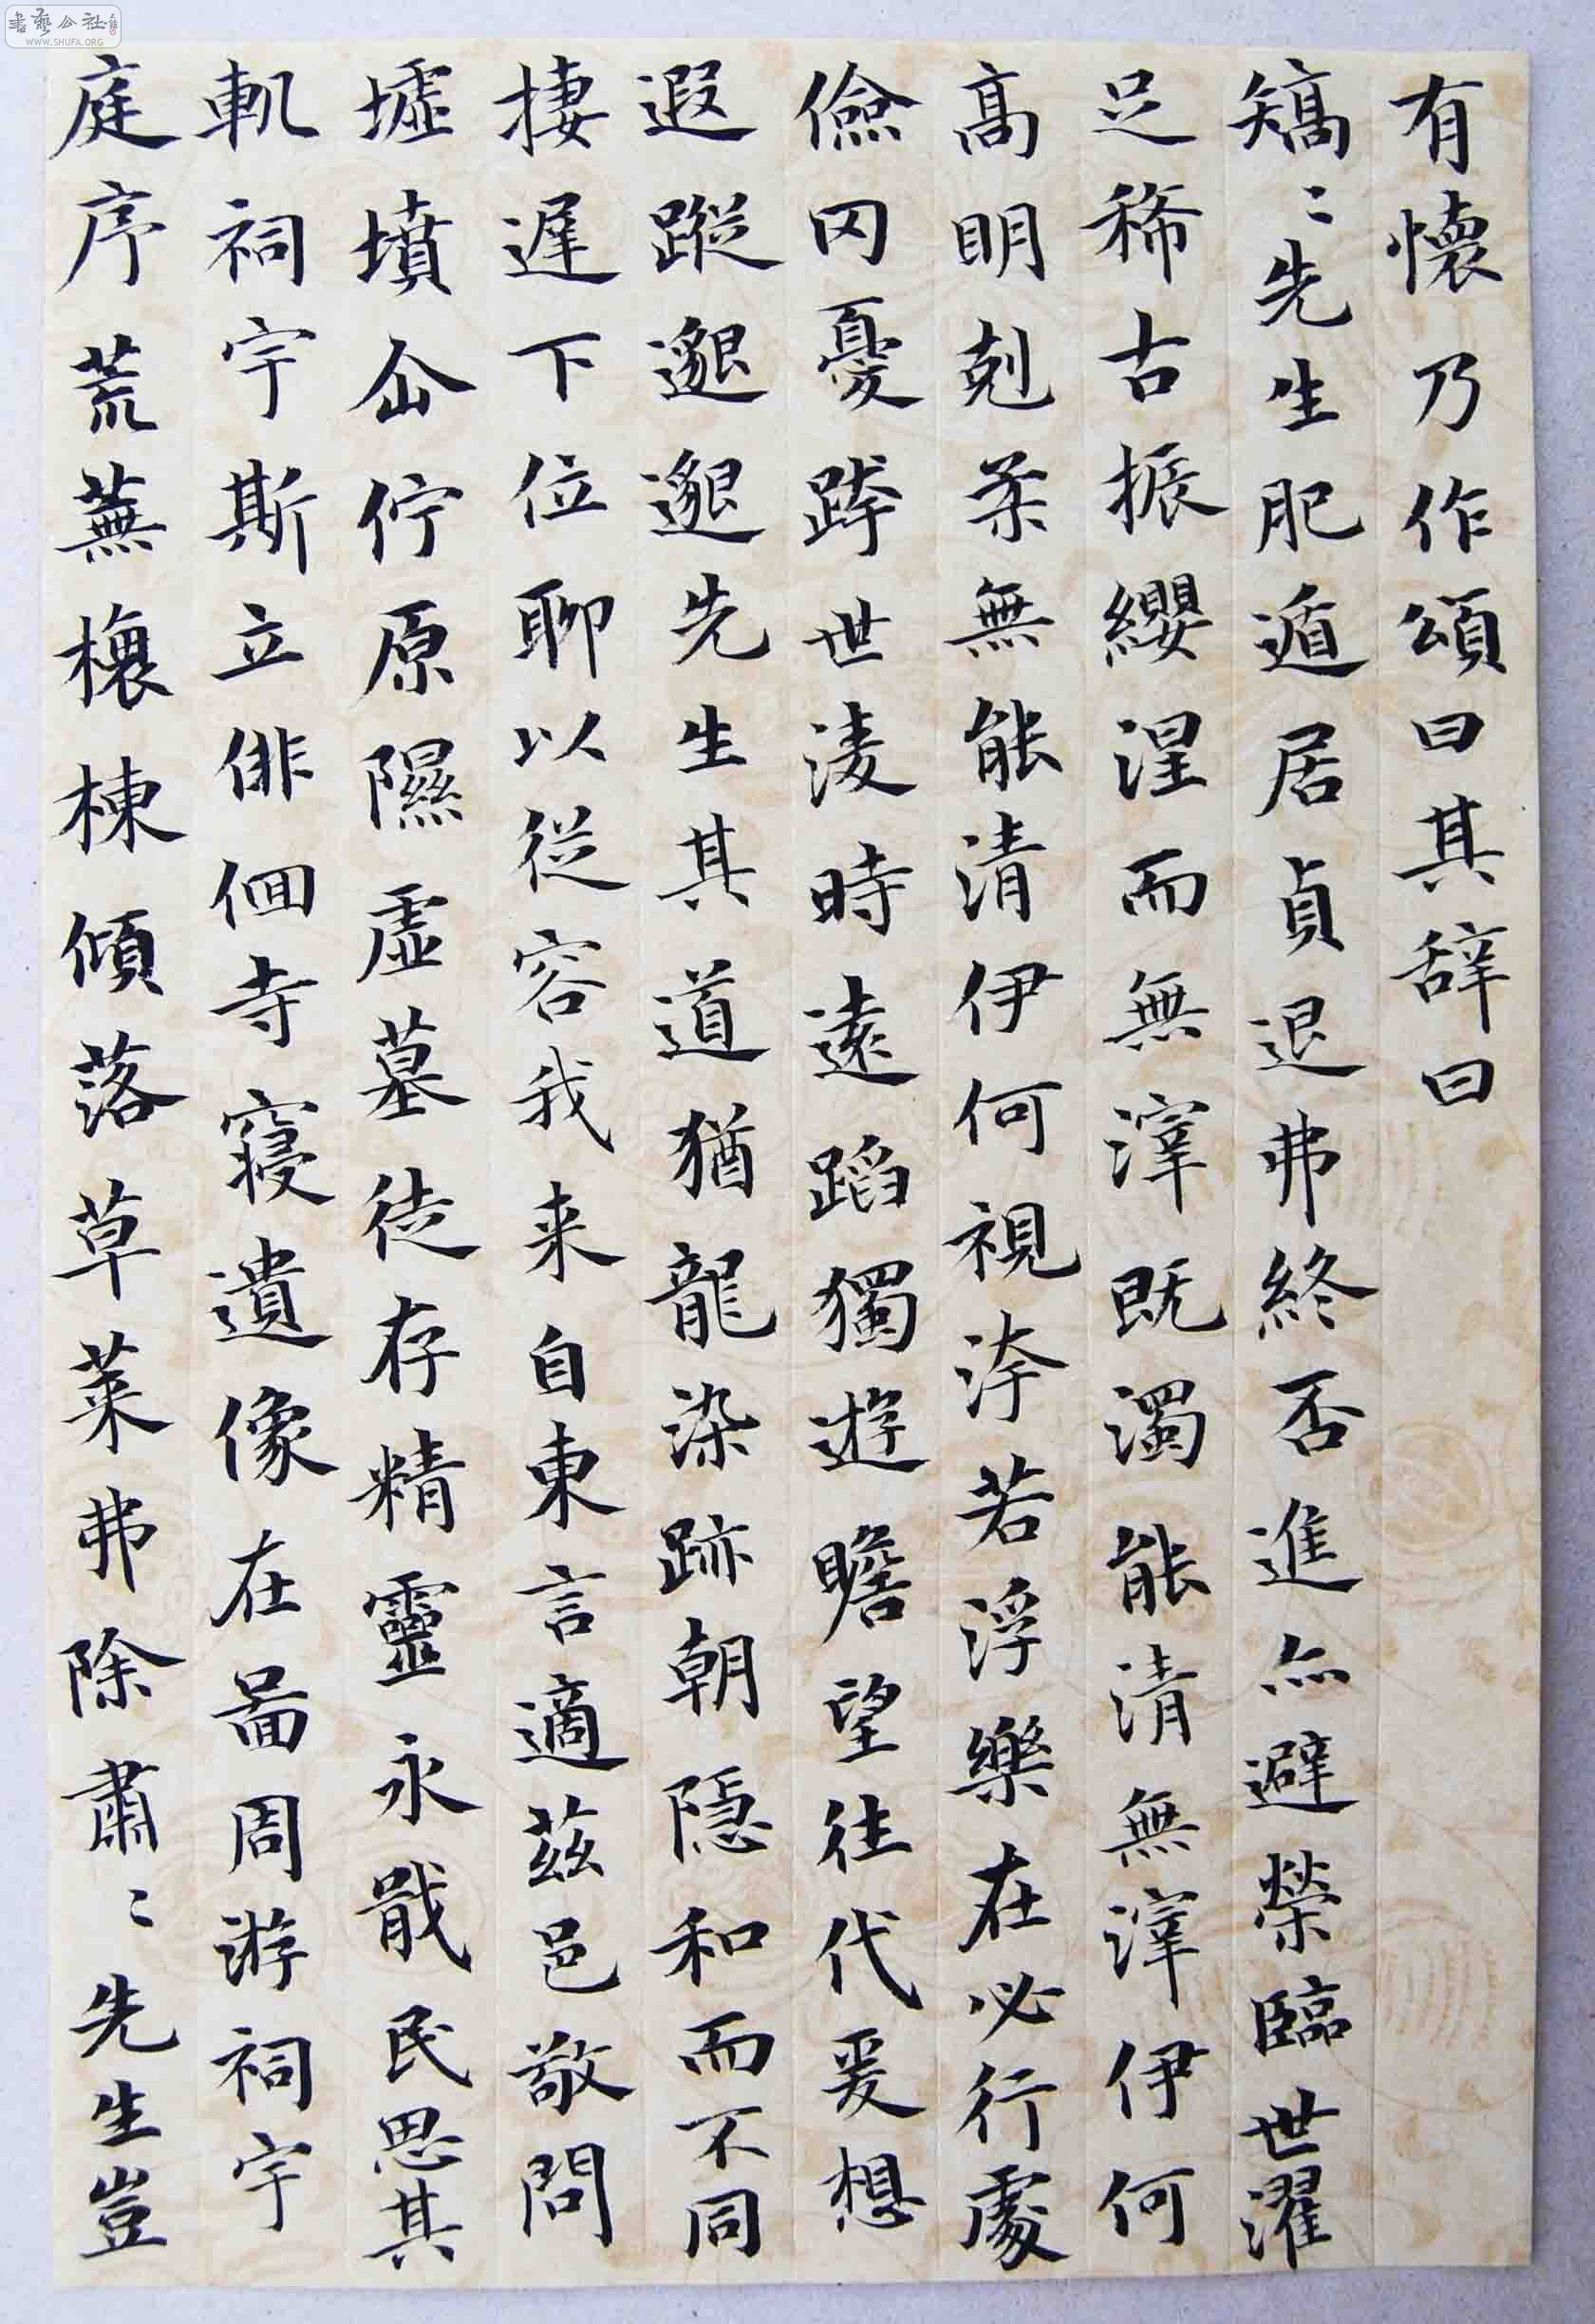 書藝公社
WWW.SHUFA.ORG
有懷乃作頌曰其辞曰
矯〻先生肥遁居貞退弗終否進亦避榮臨世濯
足稀古振纓涅而無滓既濁能清無滓伊何
高明剋柔無能清伊何視洿若浮樂在必行處
儉罔憂跨世淩時遠蹈獨遊瞻望往代爰想
遐蹤邈邈先生其道猶龍染跡朝隱和而不同
棲遲下位聊以從容我来自東言適茲邑敬問
墟墳企佇原隰虛墓徒存精靈永戢民思其
軌祠宇斯立俳佪寺寢遺像在圖周游祠宇
庭序荒蕪榱棟傾落草萊弗除肅〻先生豈